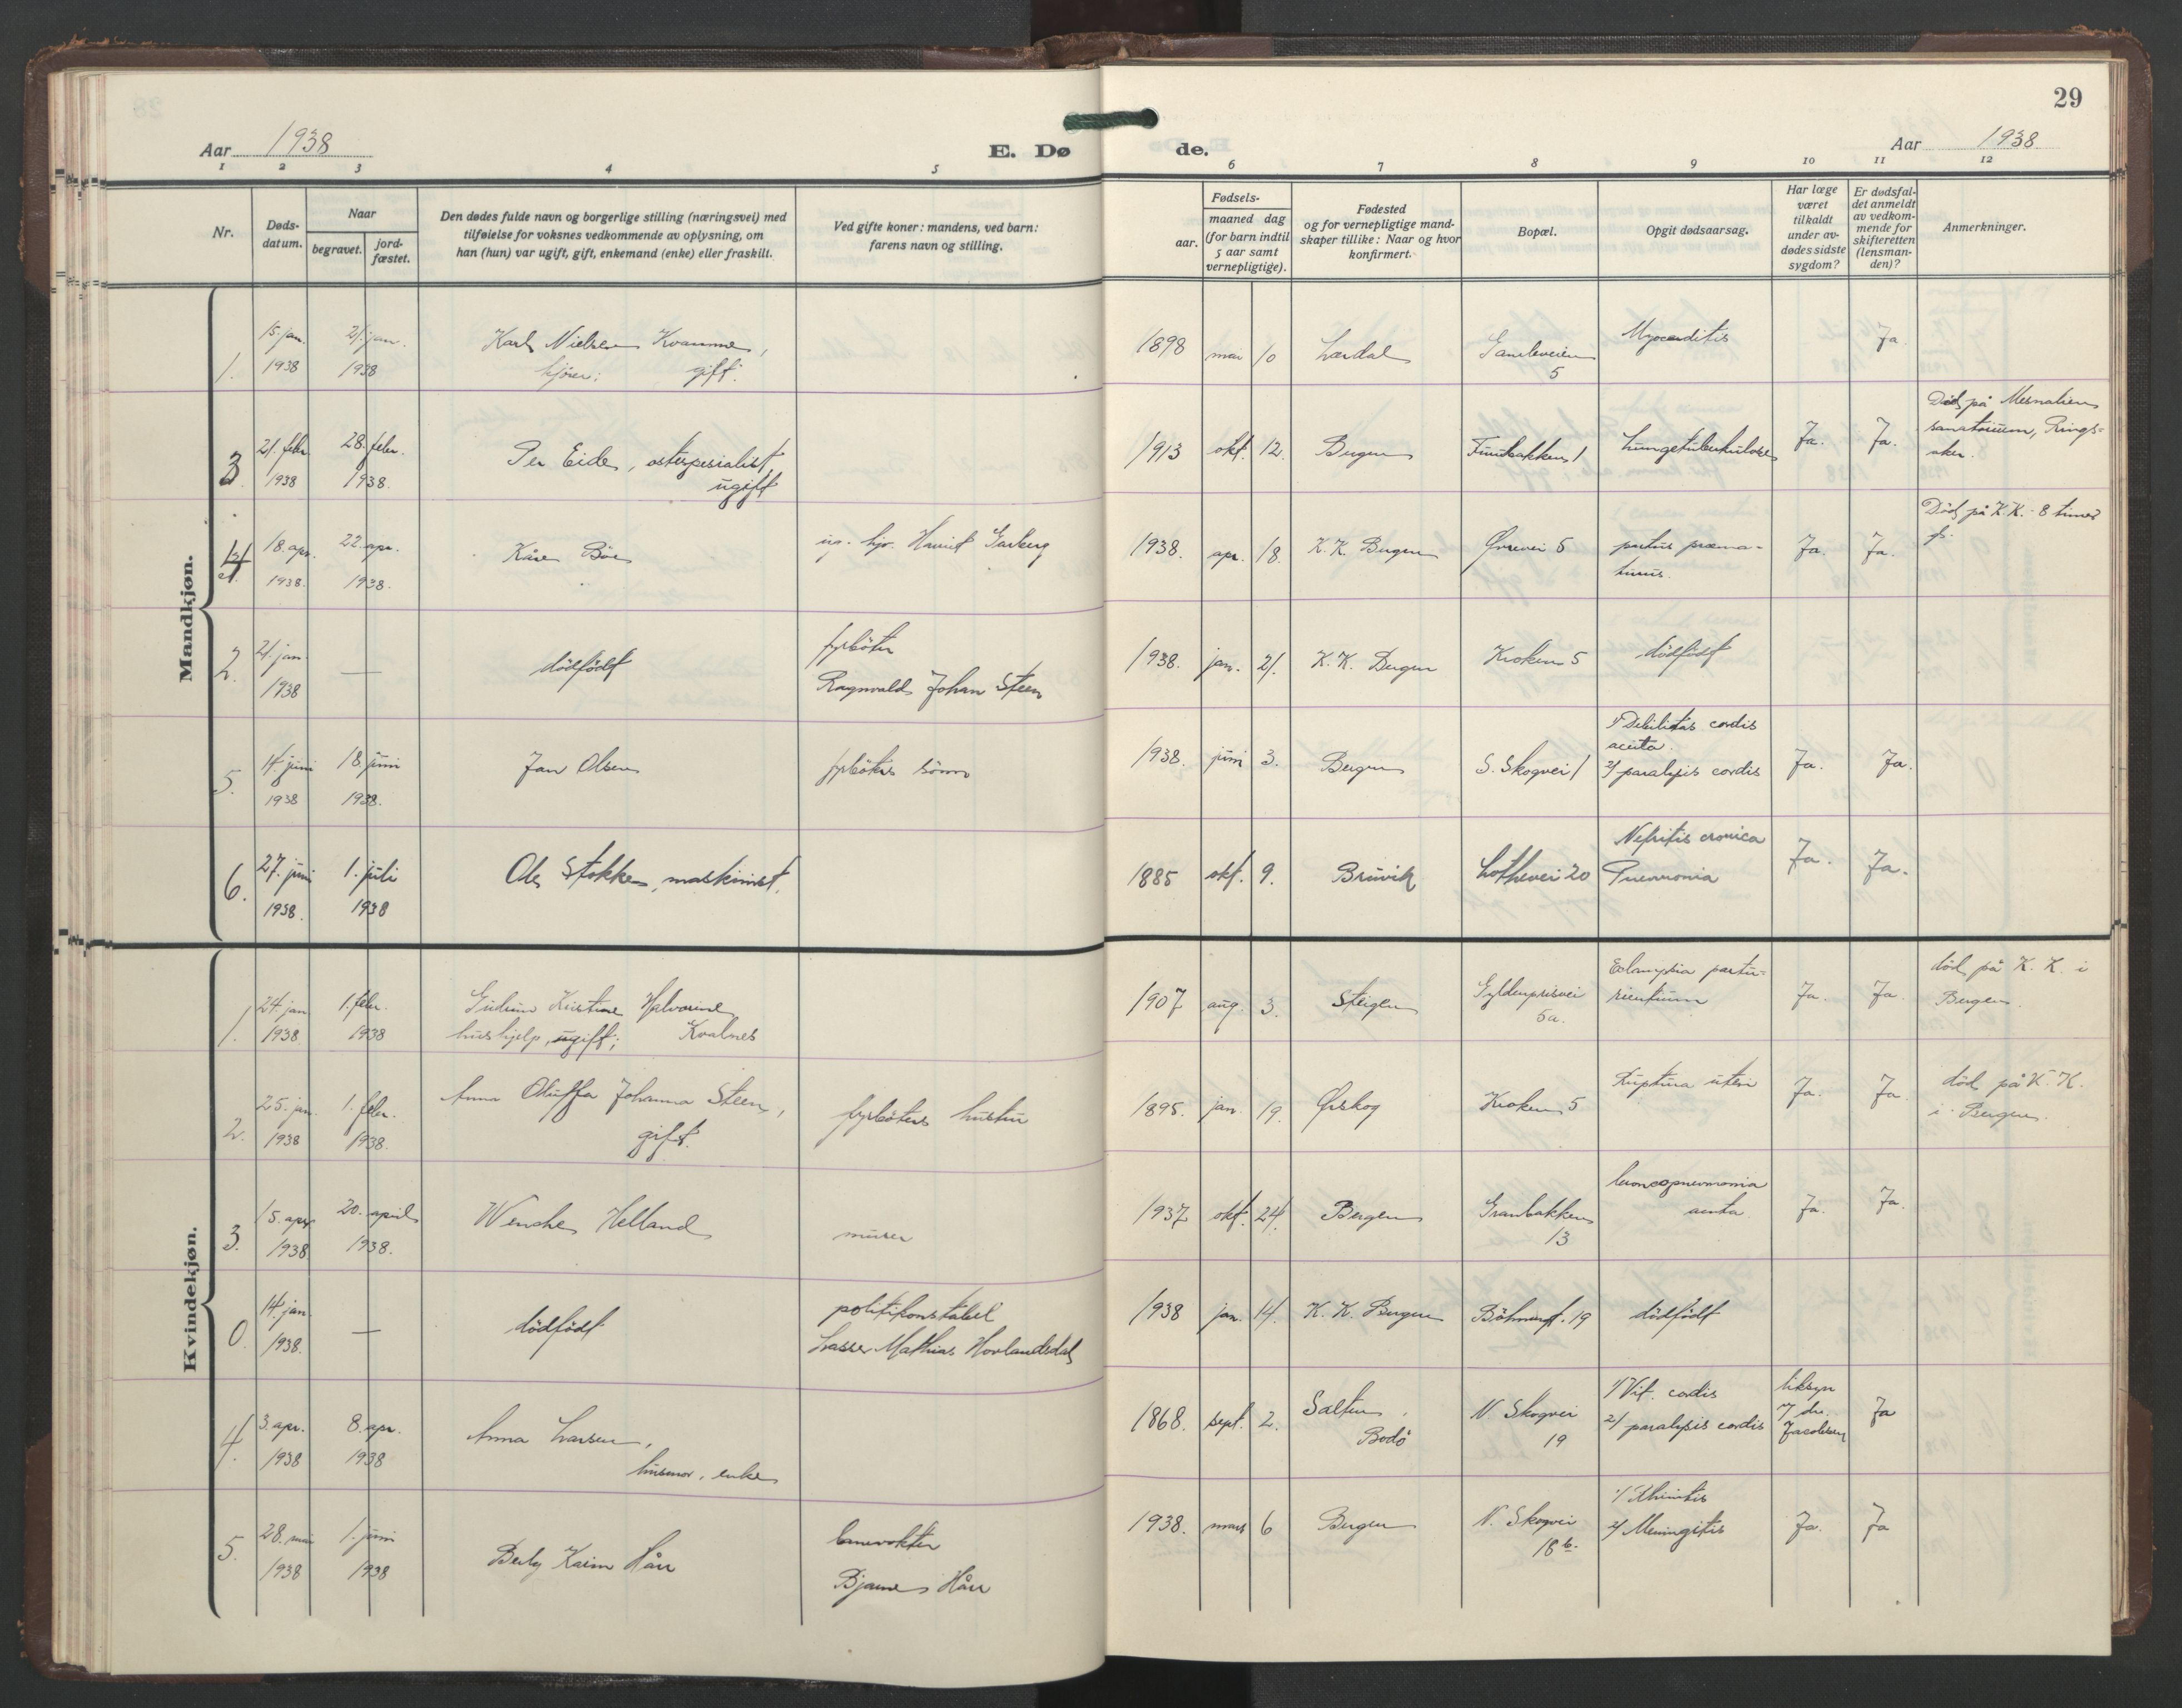 29
Aar 1938
E. Dø
de.
Aar 1938
1 2 3 4 5 6 7 8 9 10 11 12
Nr.
Døds-
datum.
Naar
begravet.
jord-
fæstet.
Den dødes fulde navn og borgerlige stilling (næringsvei) med
tilføielse for voksnes vedkommende av oplysning, om
han (hun) var ugift, gift, enkemand (enke) eller fraskilt.
Ved gifte koner: mandens, ved barn:
farens navn og stilling.
Fødsels-
aar.
maaned dag
(for barn indtil
5 aar samt
vernepligtige).
Fødested
og for vernepligtige mand-
skaper tillike: Naar og hvor
konfirmert.
Bopæl.
Opgit dødsaarsag.
Har læge
været
tilkaldt
under av-
dødes sidste
sygdom?
Er dødsfal-
det anmeldt
av vedkom-
mende for
skifteretten
(lensman-
den)?
Anmerkninger.
Mandkjøn.
1. 15. jan. 1938 21. jan. 1938
Karl Nielsen Kvamme,
gift.
1898 mai 10 Lærdal
Gamleveien
5
Myocarditis
Ja.
3. 21. febr. 1938 28. febr. 1938.
Per Eide, osterspesialist,
ugift
1913 okt. 12. Bergen
1
Lungetuberkulose
Ja. Ja.
Død på Mesnalien
sanatorium, Rings-
aker.
4. 18. apr. 1938. 22. apr. 1938.
Kåre Bøe
1938. apr. 18. K. K. Bergen
Øvrevei 5
partus præma-
turus.
Ja. Ja.
Død på K.K. - 8 timer
2. 21. jan. 1938 —
dödfödt
fyrböter
Ragnvald Johan Steen
1938. jan. 21. K. K. Bergen
Kroken 5
dödfödt
5. 14. juni 1938 18. juni 1938.
Jan Olsen
fyrböters sönn
1938. juni 3. Bergen
S. Skogvei 1
1/ Debilitas cordis
acuta.
2/ paralysis cordis
Ja. Ja.
6. 27. juni 1938. 1. juli 1938
Ole Stokke, maskinist.
1885 okt. 9. Bruvik
Lothevei 20
Nefritis cronica
Pneumonia
Ja. Ja.
Kvindekjøn.
1. 24. jan 1938. 1. febr. 1938
Gudrun Kristine Halvorine
hushjelp, ugift; Kvalnes
1907 aug. 3. Steigen
Gyldenprisvei
5a.
Eclampsia partu-
rientium
Ja. Ja.
död på K. K. i
Bergen.
2. 25. jan. 1938 1. febr. 1938.
Anna Oluffa Johanna Steen,
gift.
fyrböters hustru
1895. jan. 19. Ørskog
Kroken 5
Ruptura uteri
Ja. Ja.
död på K. K.
i Bergen.
3. 15. apr. 1938 20. april 1938.
Wenche Helland
murer
1937 okt. 24. Bergen
Granbakken
13
broncopneumonia
acuta
Ja. Ja.
0. 14. jan 1938. —
dödfödt
politikonstabel
Lasse Mathias Hovlandsdal
1938 jan. 14. K. K. Bergen
19
dödfödt
4. 3. apr. 1938 8. apr. 1938
Anna Larsen,
husmor, enke
1868. sept. 2. Salten,
Bodö
N. Skogvei
19
1/ Vit. cordis
2/ paralysis cordis
liksyn
v/ dr.
Jacobsen
Ja
5. 28. mai 1938 1. juni 1938
Karin Hårr
banevokter
Bjarne Hårr
1938. mars 6 Bergen
N. Skogvei
18 b.
1/ Rhinitis
2/ Meningitis
Ja. Ja